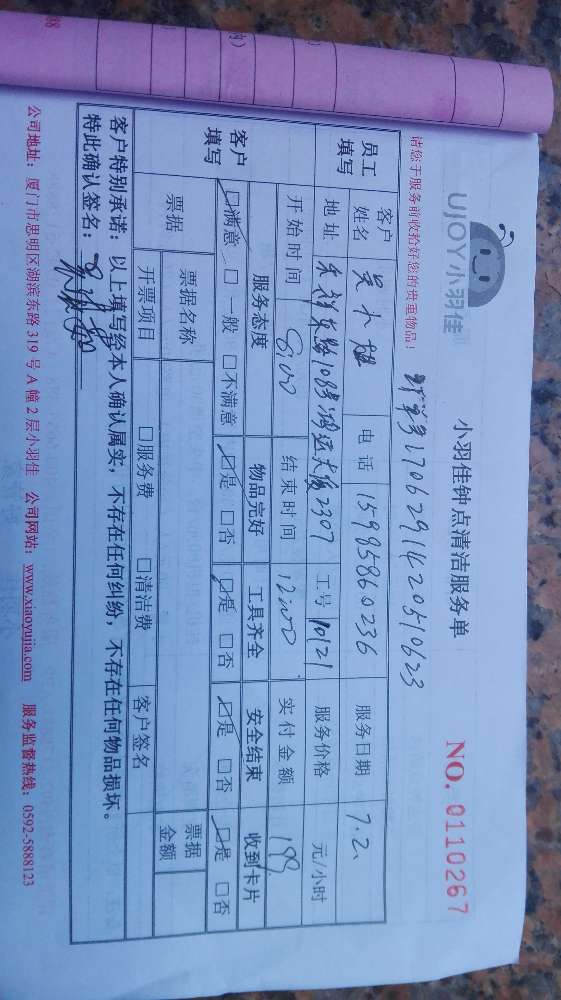 UJOY小羽佳
小羽佳钟点清洁服务单
NO. 0110267
请您于服务前收拾好您的贵重物品!
1706291420510623
员工填写 客户姓名 吴小 电话 15985860236 服务日期 7.2、
地址 东路108号鸿运大厦2307 工号 10121 服务价格 元/小时
开始时间 8:00 结束时间 12:00 实付金额 199
客户填写 服务态度 物品完好 工具齐全 安全结束 收到卡片
☑满意 □一般 □不满意 ☑是 □否 ☑是 □否 ☑是 □否 ☑是 □否
票据 票据名称 票据金额
开票项目 □服务费 □清洁费 客户签名
客户特别承诺：以上填写经本人确认属实，不存在任何纠纷，不存在任何物品损坏。
特此确认签名：
公司地址：厦门市思明区湖滨东路 319 号 A 幢 2 层小羽佳 公司网站：www.xiaoyujia.com 服务监督热线：0592-5888123